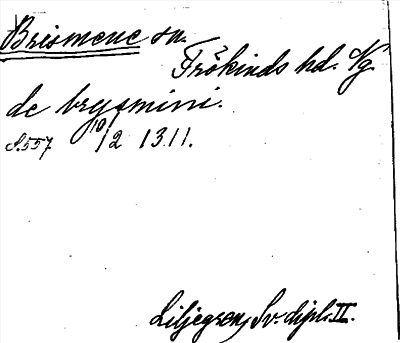 Brismene sn.
Frökinds hd. Vg.
de brysmini.
S. 557 10/2 1311.
Liljegren, Sv. dipl. II.